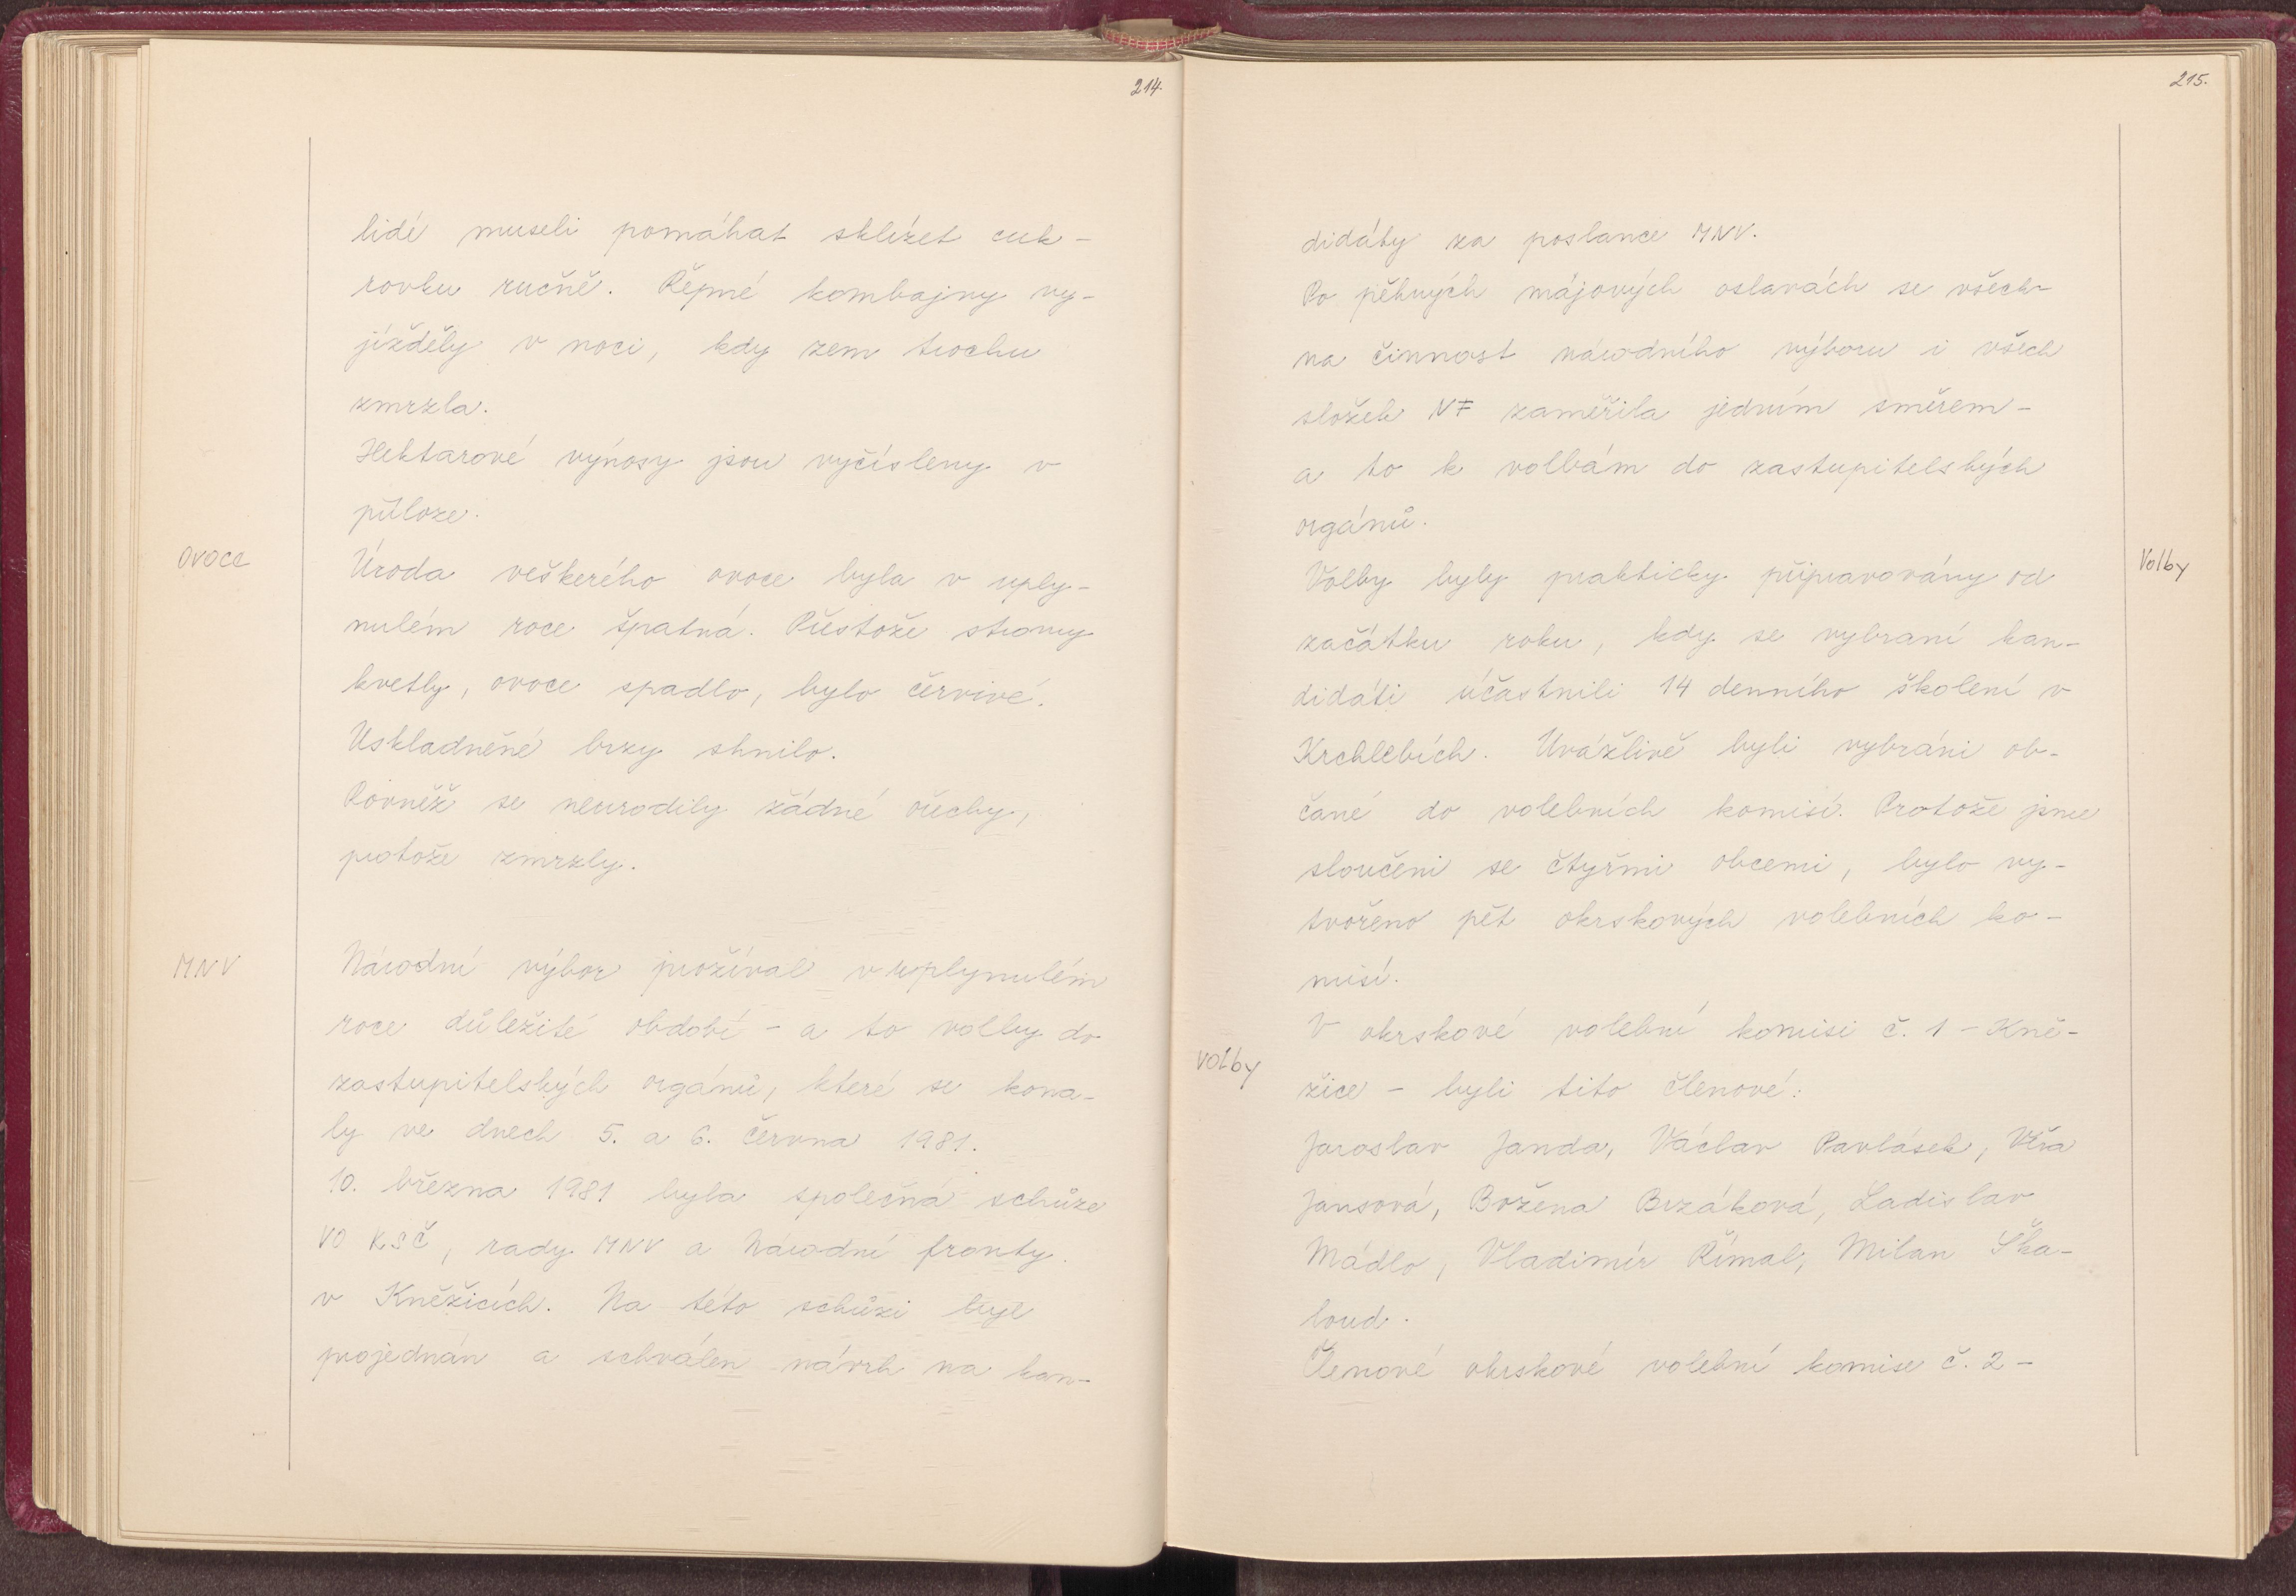 214.
lidé museli pomáhat sklízet cuk-
rovku ručně. Řepné kombajny vy-
jížděly v noci, kdy zem trochu
zmrzla.
Hektarové výnosy jsou vyčísleny v
příloze.
ovoce
Úroda veškerého ovoce byla v uply-
nulém roce špatná. Přestože stromy
kvetly, ovoce spadlo, bylo červivé.
Uskladněné brzy shnilo.
Rovněž se neurodily žádné ořechy,
protože zmrzly.
MNV
Národní výbor prožíval v uplynulém
roce důležité období - a to volby do
zastupitelských orgánů, které se kona-
ly ve dnech 5. a 6. června 1981.
10. března 1981 byla společná schůze
VO KSČ, rady MNV a Národní fronty
v Kněžicích. Na této schůzi byl
projednán a schválen návrh na kan-
215.
didáty za poslance MNV.
Po pěkných májových oslavách se všech-
na činnost národního výboru i všech
složek NF zaměřila jedním směrem -
a to k volbám do zastupitelských
orgánů.
Volby
Volby byly prakticky připravovány od
začátku roku, kdy se vybraní kan-
didáti účastnili 14 denního školení v
Krchlebích. Uvážlivě byli vybráni ob-
čané do volebních komisí. Protože jsme
sloučeni se čtyřmi obcemi, bylo vy-
tvořeno pět okrskových volebních ko-
misí.
V okrskové volební komisi č. 1 - Kně-
volby
žice - byli tito členové:
Jaroslav Janda, Václav Pavlásek, Věra
Jansová, Božena Brzáková, Ladislav
Mádlo, Vladimír Římal, Milan Ška-
loud.
Členové okrskové volební komise č. 2 -